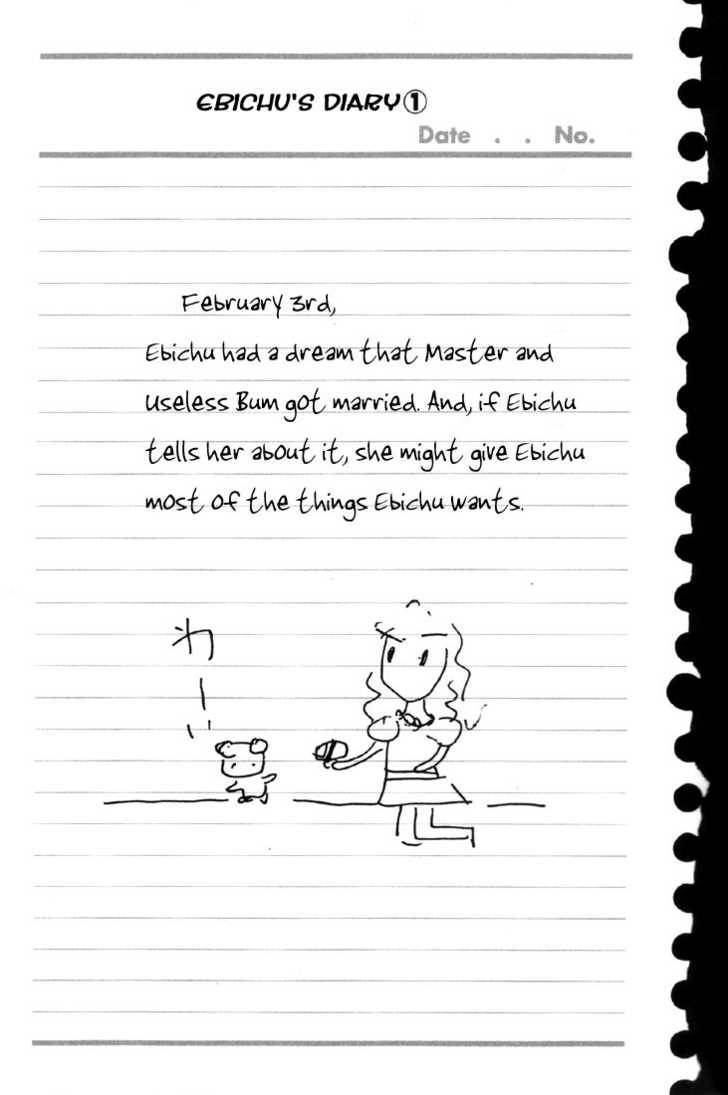 EBICHU'S DIARY①
Date . . No.
February 3rd,
Ebichu had a dream that Master and
Useless Bum got married. And, if Ebichu
tells her about it, she might give Ebichu
most of the things Ebichu wants.
わ
ー